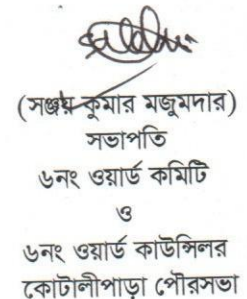 (সঞ্জয় কুমার মজুমদার)
সভাপতি
৬নং ওয়ার্ড কমিটি
ও
৬নং ওয়ার্ড কাউন্সিলর
কোটালীপাড়া পৌরসভা